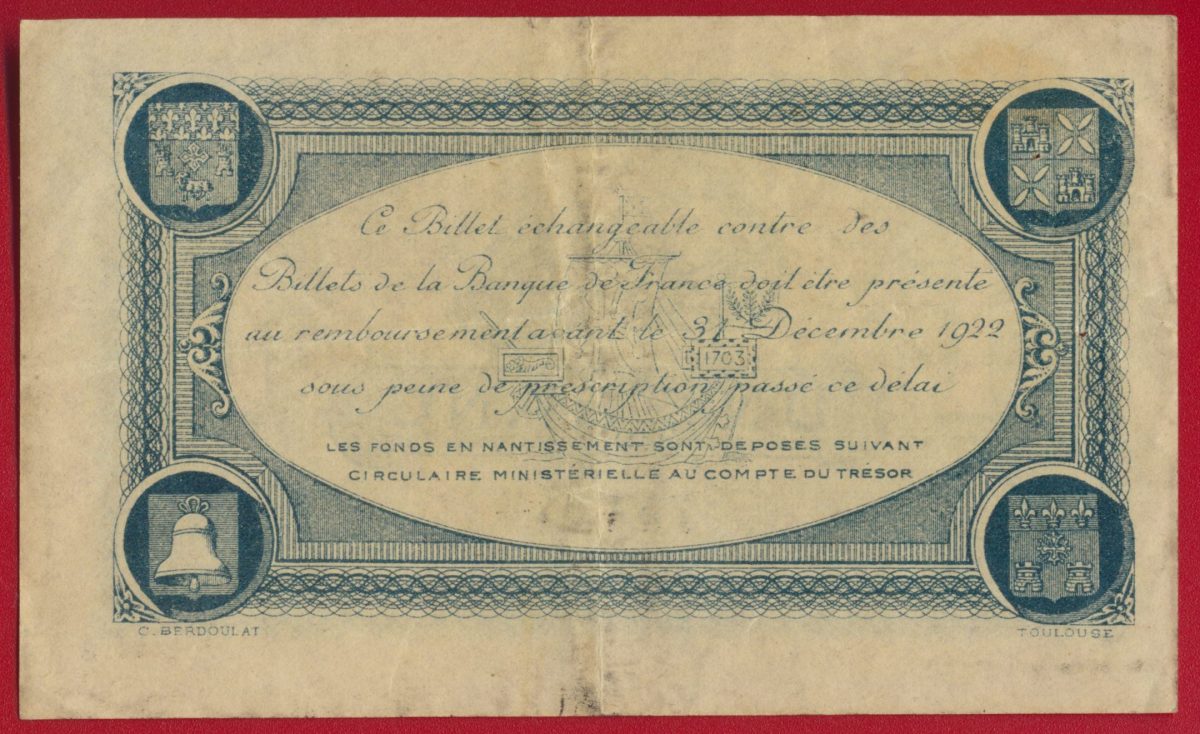 Ce Billet échangeable contre des
Billets de la Banque de France doit être présenté
au remboursement avant le 31 Décembre 1922
1703
sous peine de prescription passé ce délai
LES FONDS EN NANTISSEMENT SONT DEPOSES SUIVANT
CIRCULAIRE MINISTÉRIELLE AU COMPTE DU TRÉSOR
C. BERDOULAT
TOULOUSE